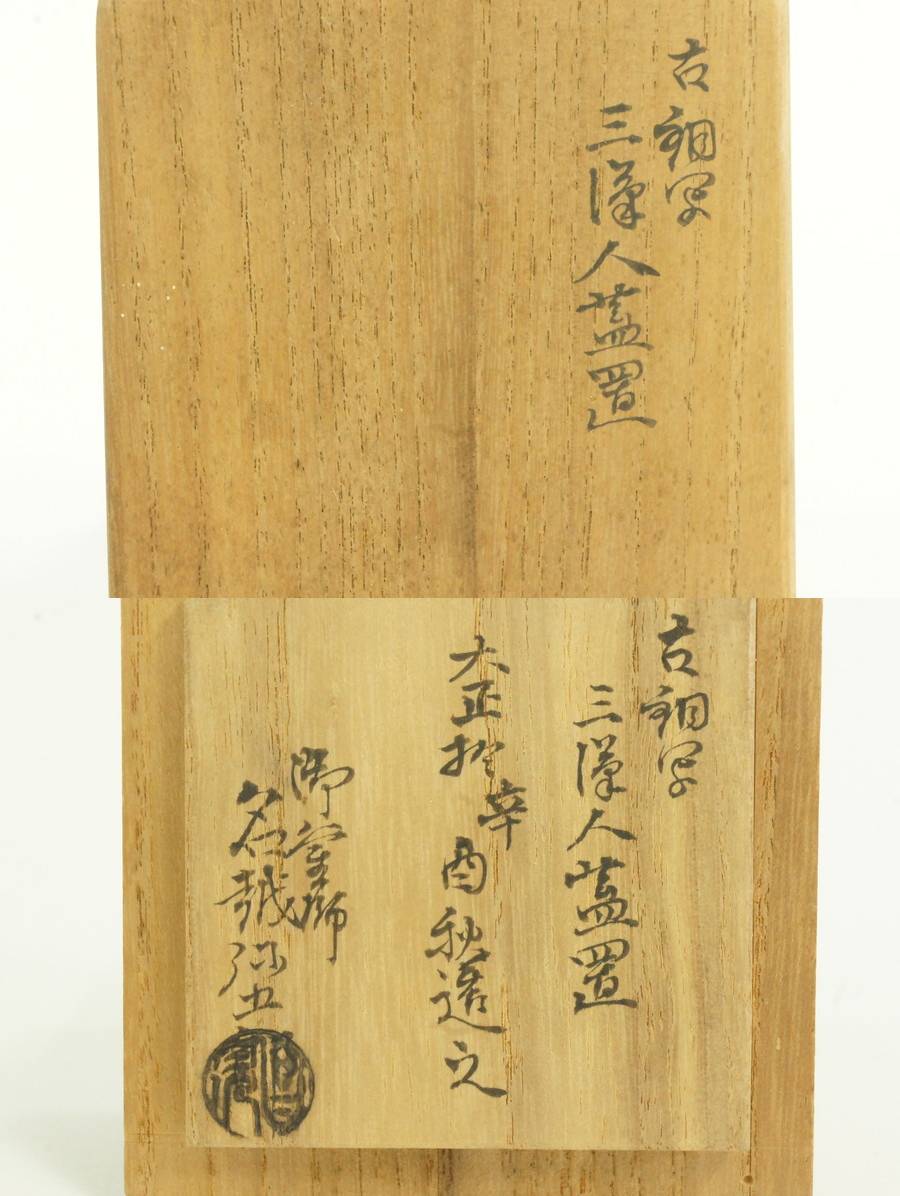 古銅写
三漢人蓋置
古銅写
三漢人蓋置
大正拾辛酉秋造之
御釜師
名越弥五